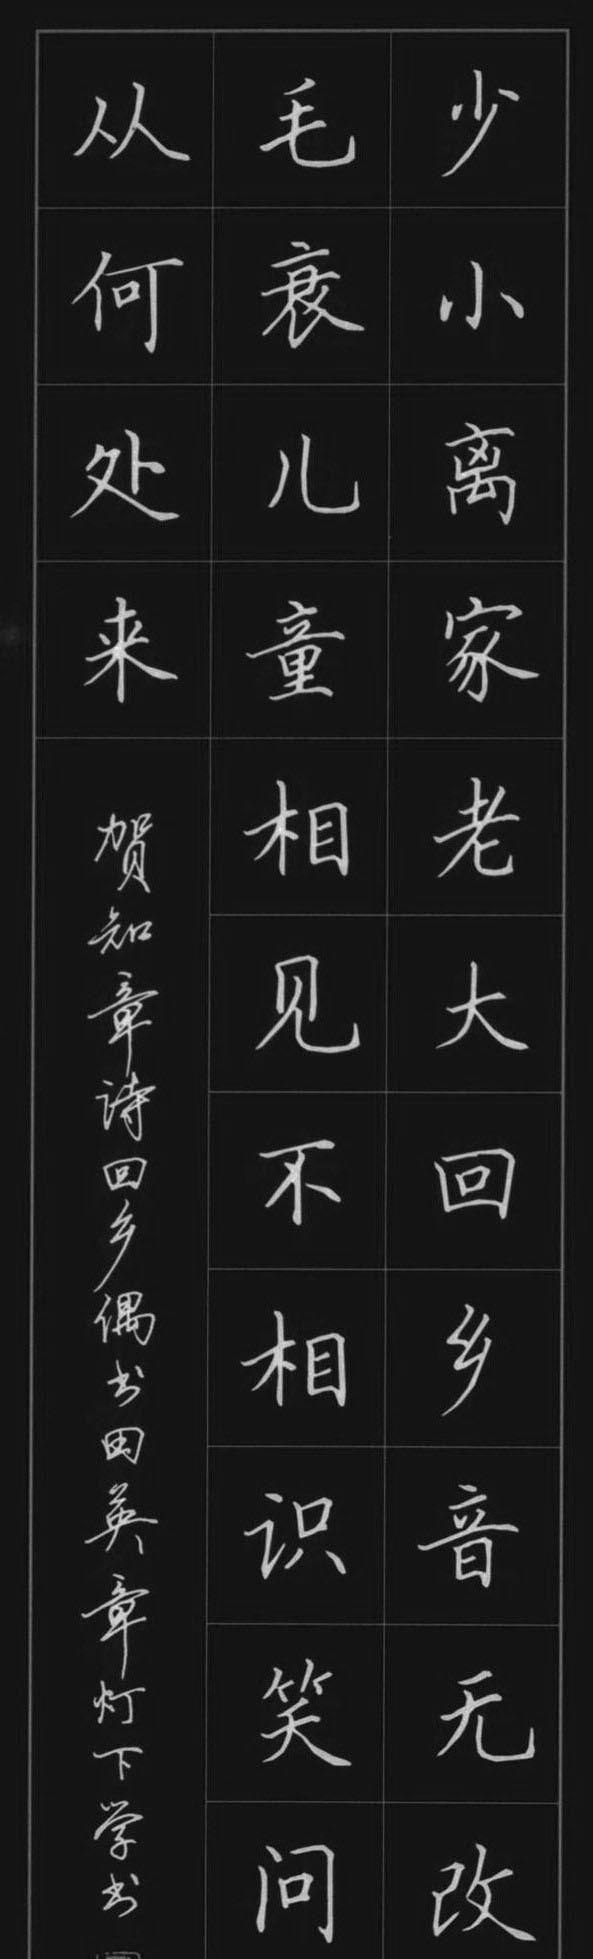 少小离家老大回乡音无改
毛衰儿童相见不相识笑问
从何处来
贺知章诗回乡偶书田英章灯下学书